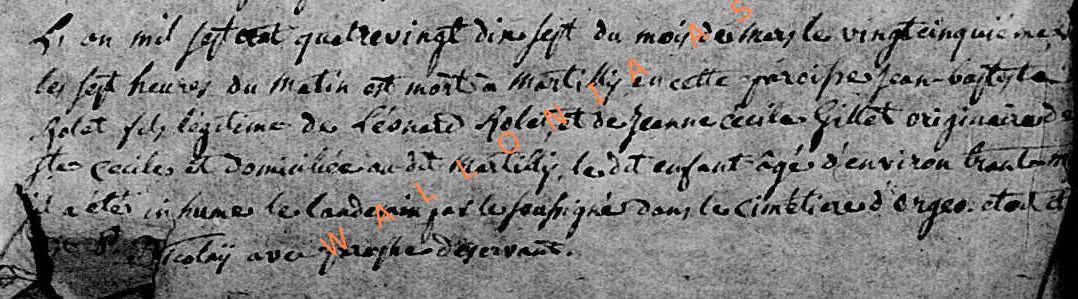 L an mil sept cent quatrevingt dix sept du mois de mars le vingtcinquieme
les sept heures du matin est mort a Martilly en cette paroisse jean-baptiste
Rolet fils légitime de Léonard Rolet et de Jeanne cecile Gillet originaire de
ste cecile et domiciliée au dit Martilly, le dit enfant âgé d'environ
il a été inhumé le landemain par le soussigné dans le cimetiere d'orgeo.
Nicolaÿ avec paraphe déservant.
WALLONIA ASBL